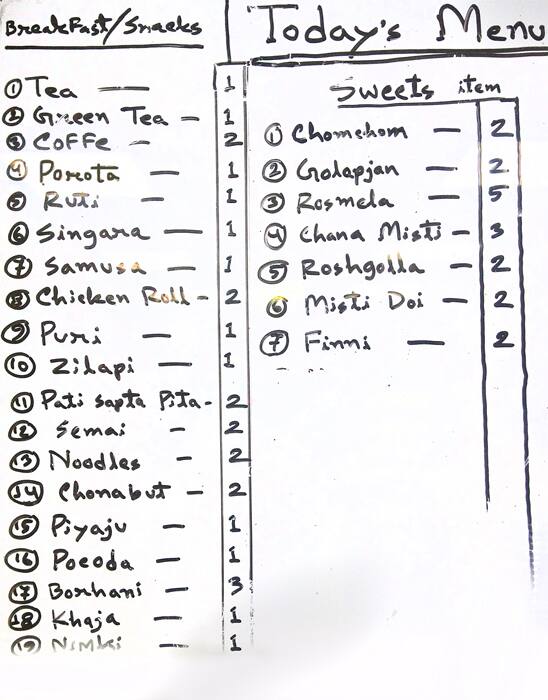 BreakFast/Snacks
① Tea — 1
② Green Tea — 1
③ CoFFe — 2
④ Porota — 1
⑤ Ruti — 1
⑥ Singara — 1
⑦ Samusa — 1
⑧ Chicken Roll - 2
⑨ Puri — 1
⑩ Zilapi — 1
⑪ Pati sapta Pita - 2
⑫ Semai - 2
⑬ Noodles - 2
⑭ Chonabut - 2
⑮ Piyaju — 1
⑯ Pocoda — 1
⑰ Borhani — 3
⑱ Khaja — 1
⑲ Nimki — 1
Today's Menu
Sweets item
① Chomchom — 2
② Golapjan — 2
③ Rosmela — 5
④ Chana Misti - 3
⑤ Roshgolla — 2
⑥ Misti Doi — 2
⑦ Finni — 2